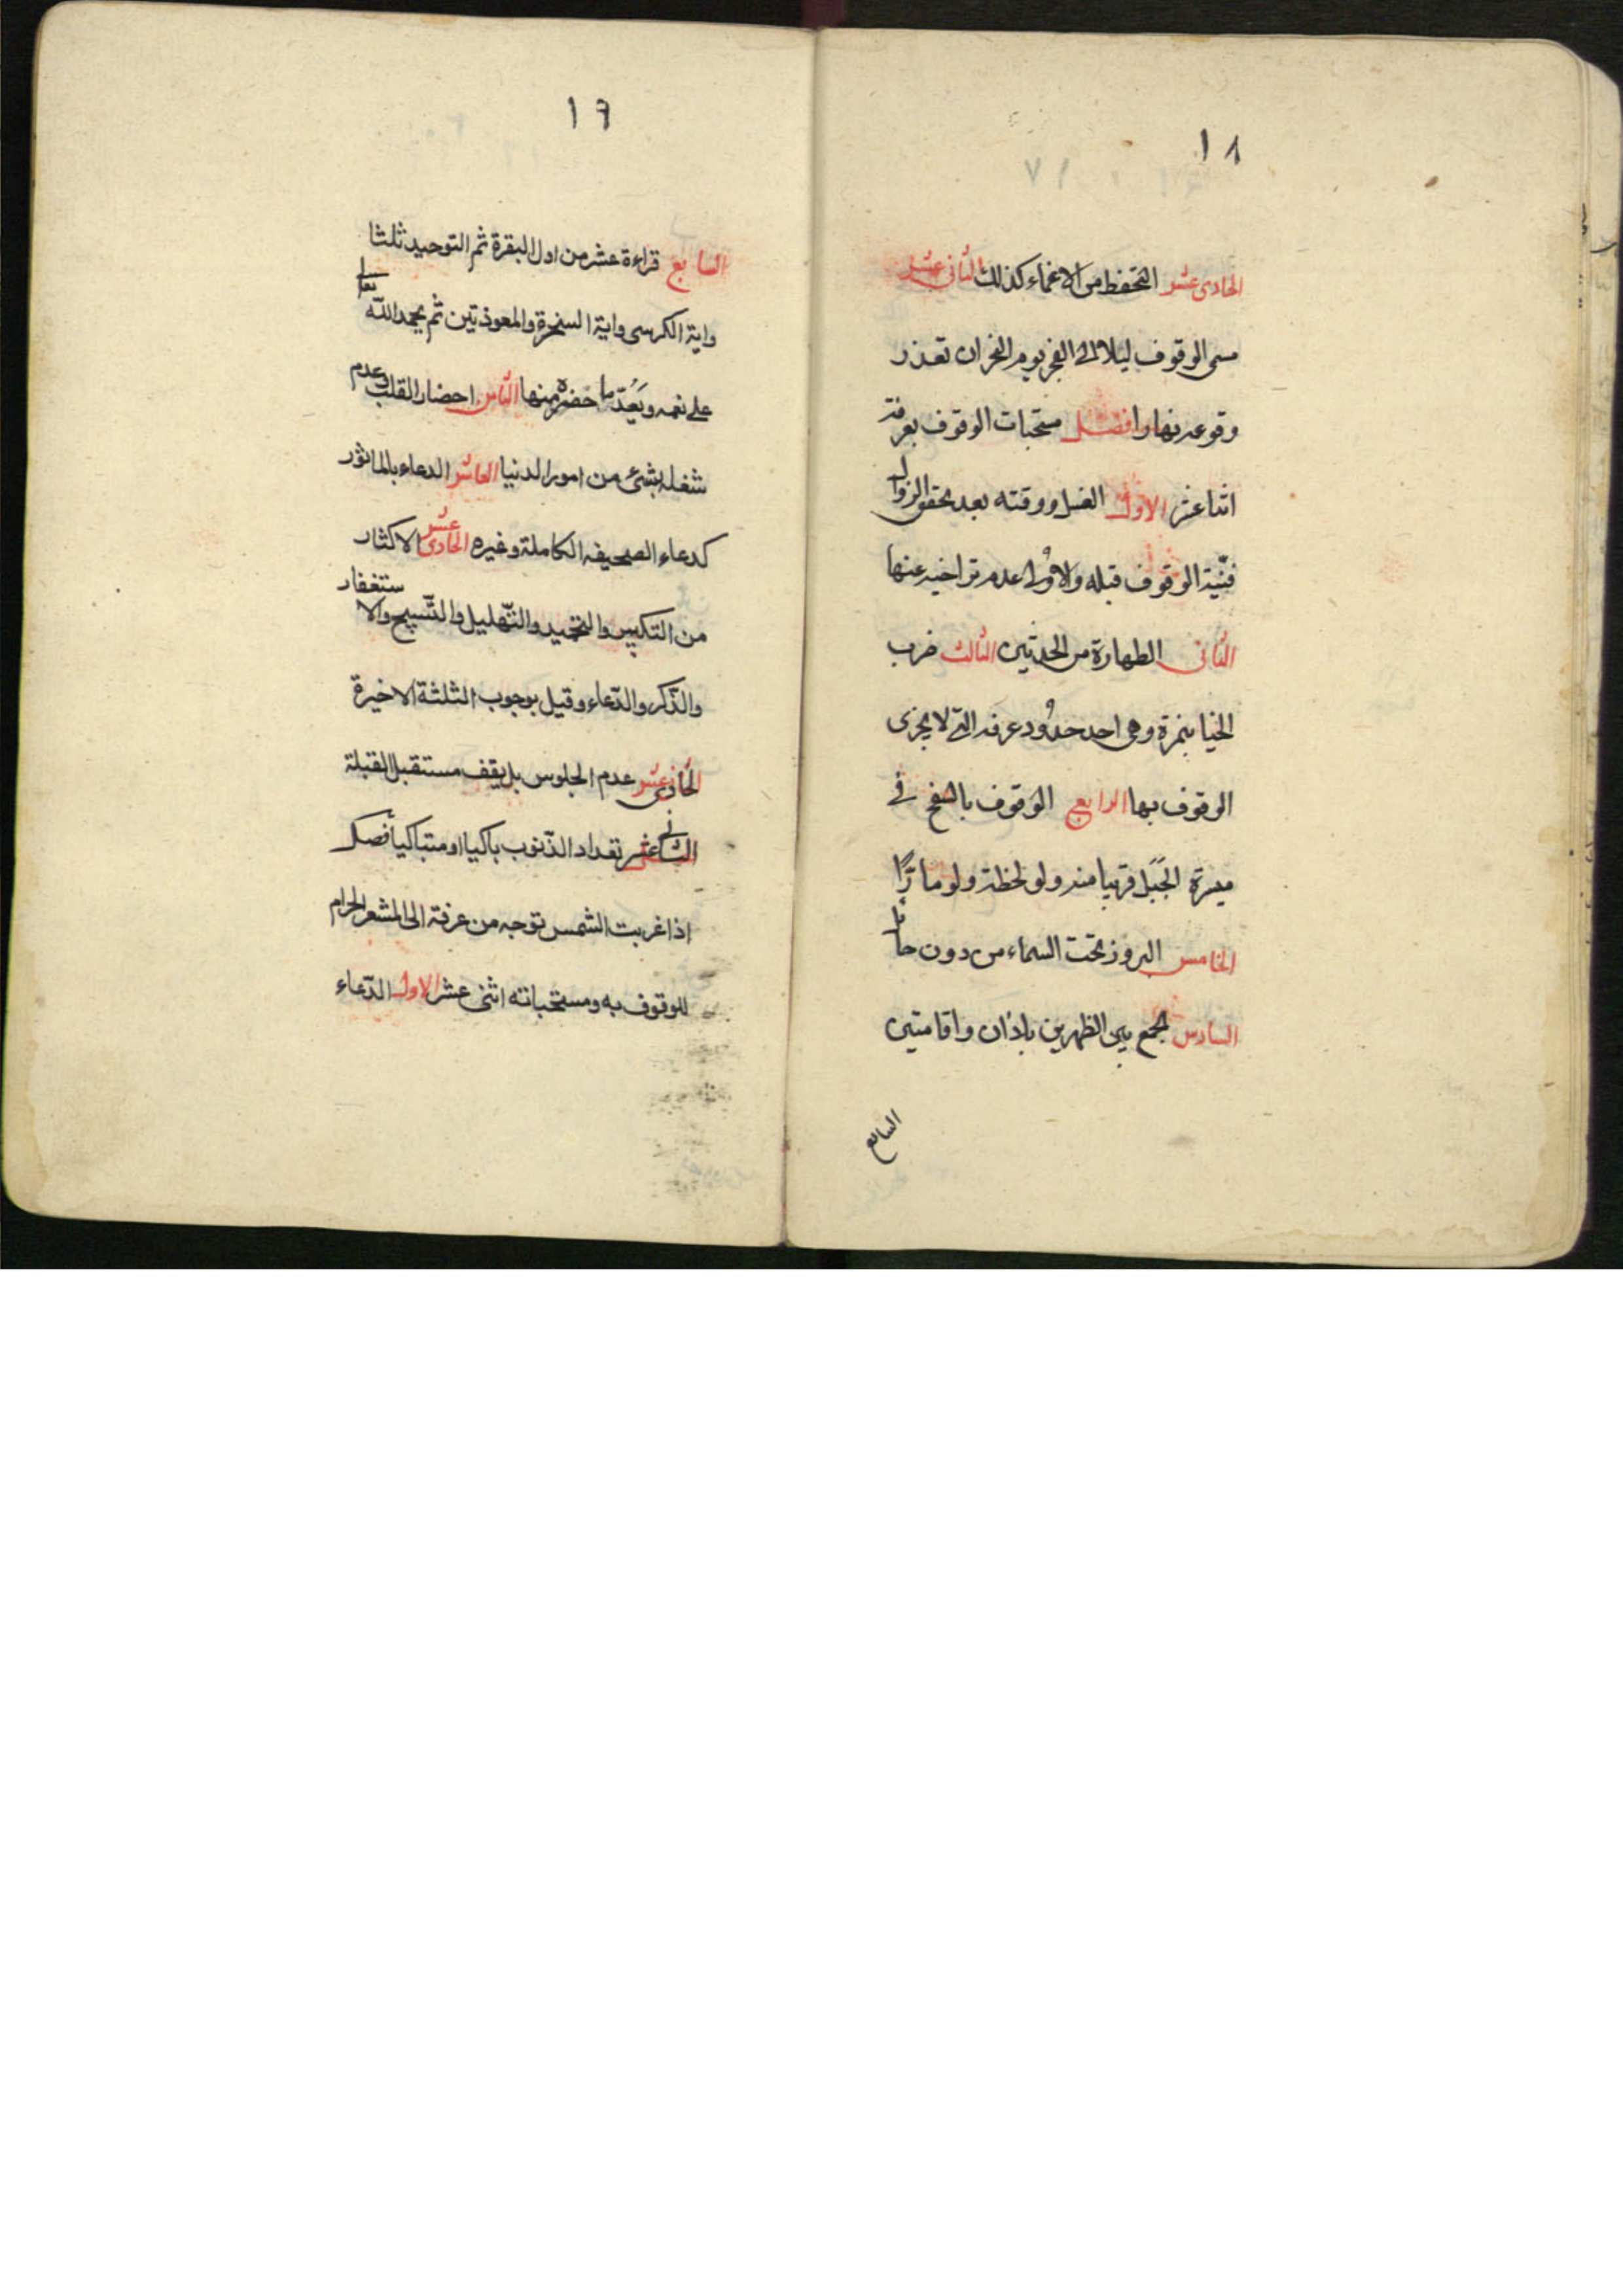 ١٨
الحادى عشر التحفظ من الاغماء كذلك الثانى عشر
مسمى الوقوف ليلا الى الفجر يوم النحر ان تعذر
وقوعه نهارا فصل مستحبات الوقوف بعرفة
اثنا عشر الاول الغسل ووقته بعد تحقق الزوال
فنيّة الوقوف قبله والاولى عدم تراخيه عنها
الثانى الطهارة من الحدثين الثالث ضرب
الخبا بنمرة وهى احد حدود عرفه التى لا يجزى
الوقوف بها الرابع الوقوف بالسفح فى
ميسرة الجَبَل قريبا منه ولو لحظة ولو مارًّا
الخامس البروز تحت السماء من دون حائل
السادس الجمع بين الظهرين باذان واقامتين
السابع
١٩
السابع قراءة عشر من اول البقرة ثم التوحيد ثلثا
واية الكرسى واية السخرة والمعوذتين ثم يحمد الله تعالى
على نعمه ويَعُدّ ما حضره منها الثامن احضار القلب وعدم
شغله بشئ من امور الدنيا العاشر الدعاء بالماثور
كدعاء الصحيفه الكاملة وغيره الحادى عشر الاكثار
من التكبير والتحميد والتّهليل والتّسبيح والاستغفار
والذّكر والدّعاء وقيل بوجوب الثلثة الاخيرة
الحادى عشر عدم الجلوس بل يقف مستقبل القبلة
الثانى عشر تعداد الذّنوب باكيا او متباكيا فصل
اذا غربت الشمس توجه من عرفة الى المشعر الحرام
للوقوف به ومستحباته اثنى عشر الاول الدّعاء